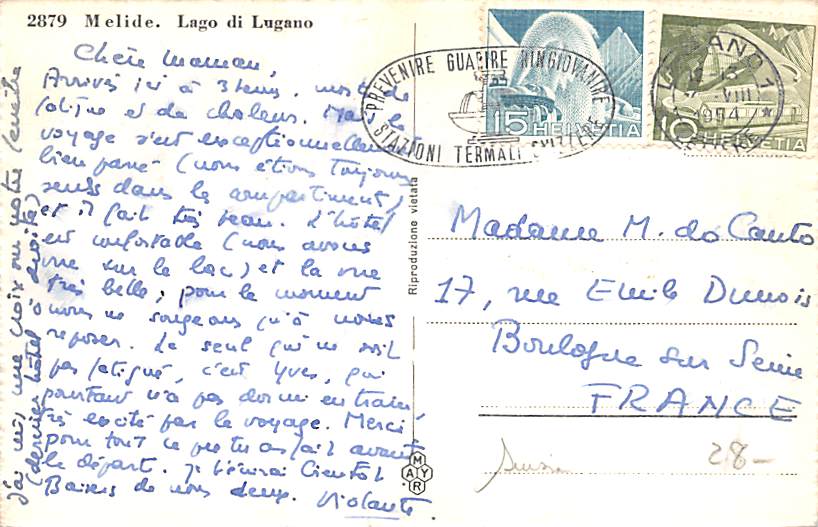 2879 Melide. Lago di Lugano
Chère Maman,
Arrivés ici à 3 heures, morts de
fatigue et de chaleur. Mais le
voyage s'est exceptionnellement
bien passé (nous étions toujours
seuls dans le compartiment)
et il fait très beau. L'hôtel
est confortable (nous avons
vue sur le lac) et la vue
très belle; pour le moment
nous ne songeons qu'à nous
reposer. Le seul qui ne soit
pas fatigué, c'est Yves, qui
pourtant n'a pas dormi en train,
très excité par le voyage. Merci
pour tout ce que tu as fait avant
le départ. Je t'écrirai bientôt
Baisers de nous deux. Violante
J'ai mis une croix sur notre fenêtre
(dernier hôtel à droite)
PREVENIRE GUARIRE RINGIOVANIRE
STAZIONI TERMALI SVIZZERE
15 HELVETIA
HELVETIA
LUGANO 1
VIII
1954
LETTERE
Riproduzione vietata
Madame M. do Canto
17, rue Emile Dunois
Boulogne sur Seine
FRANCE
28-
MAYR